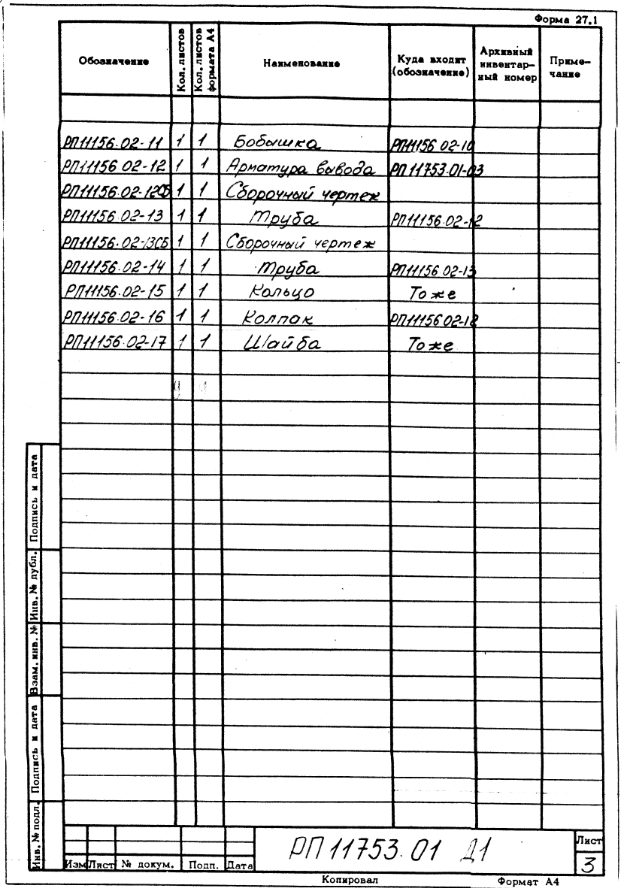 Форма 27.1
Обозначение Кол. листов Кол. листов формата А4 Наименование Куда входит (обозначение) Архивный инвентар-ный номер Приме-чание
РП11156.02-11 1 1 Бобышка РП11156.02-10
РП11156.02-12 1 1 Арматура вывода РП11753.01-03
РП11156.02-12СБ 1 1 Сборочный чертеж
РП11156.02-13 1 1 Труба РП11156.02-12
РП11156.02-13СБ 1 1 Сборочный чертеж
РП11156.02-14 1 1 Труба РП11156.02-13
РП11156.02-15 1 1 Кольцо То же
РП11156.02-16 1 1 Колпак РП11156.02-12
РП11156.02-17 1 1 Шайба То же
Подпись и дата
Инв. № дубл.
Взам. инв. №
Подпись и дата
Инв. № подл.
РП 11753.01 Д1
Лист
3
Изм Лист № докум. Подп. Дата
Копировал Формат А4